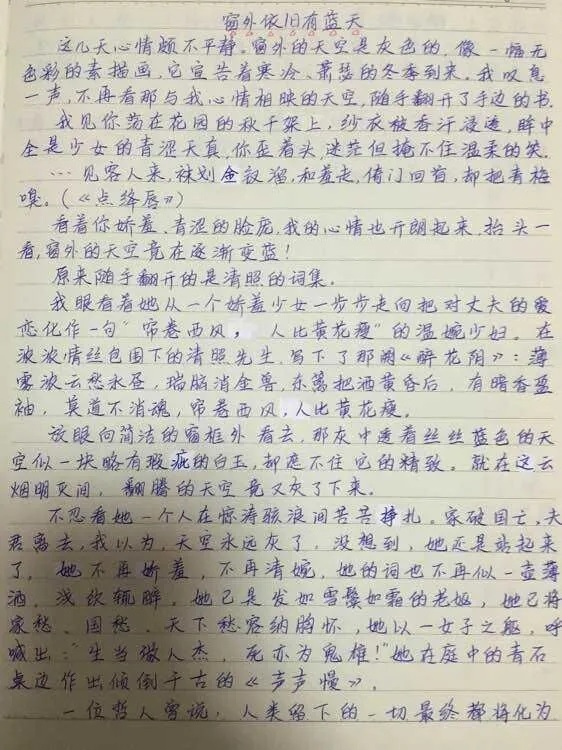 窗外依旧有蓝天
这几天心情颇不平静。窗外的天空是灰色的,像一幅无
色彩的素描画,它宣告着寒冷、萧瑟的冬季到来。我叹息
一声,不再看那与我心情相映的天空,随手翻开了手边的书。
我见你荡在花园的秋千架上,纱衣被香汗浸透,眸中
全是少女的青涩天真,你歪着头,迷茫但掩不住温柔的笑。
…见客人来,袜刬金钗溜,和羞走,倚门回首,却把青梅
嗅。(《点绛唇》)
看着你娇羞、青涩的脸庞,我的心情也开朗起来,抬头一
看,窗外的天空竟在逐渐变蓝!
原来随手翻开的是清照的词集。
我眼看着她从一个娇羞少女一步步走向把对丈夫的爱
恋化作一句“帘卷西风,人比黄花瘦”的温婉少妇。在
浓浓情丝包围下的清照先生,写下了那阙《醉花阴》:薄
雾浓云愁永昼,瑞脑消金兽,东篱把酒黄昏后,有暗香盈
袖,莫道不消魂,帘卷西风,人比黄花瘦。
放眼向简洁的窗框外看去,那灰中透着丝丝蓝色的天
空似一块略有瑕疵的白玉,却遮不住它的精致。就在这云
烟明灭间,翻腾的天空竟又灰了下来。
不忍看她一个人在惊涛骇浪间苦苦挣扎。家破国亡,夫
君离去,我以为,天空永远灰了,没想到,她还是站起来
了,她不再娇羞,不再清婉,她的词也不再似一壶薄
酒,浅饮辄醉,她已是发如雪鬓如霜的老妪,她已将
家愁、国愁、天下愁容纳胸怀,她以一女子之躯,呼
喊出:“生当做人杰,死亦为鬼雄!”她在庭中的青石
桌边作出倾倒千古的《声声慢》。
一位哲人曾说,人类留下的一切最终都将化为